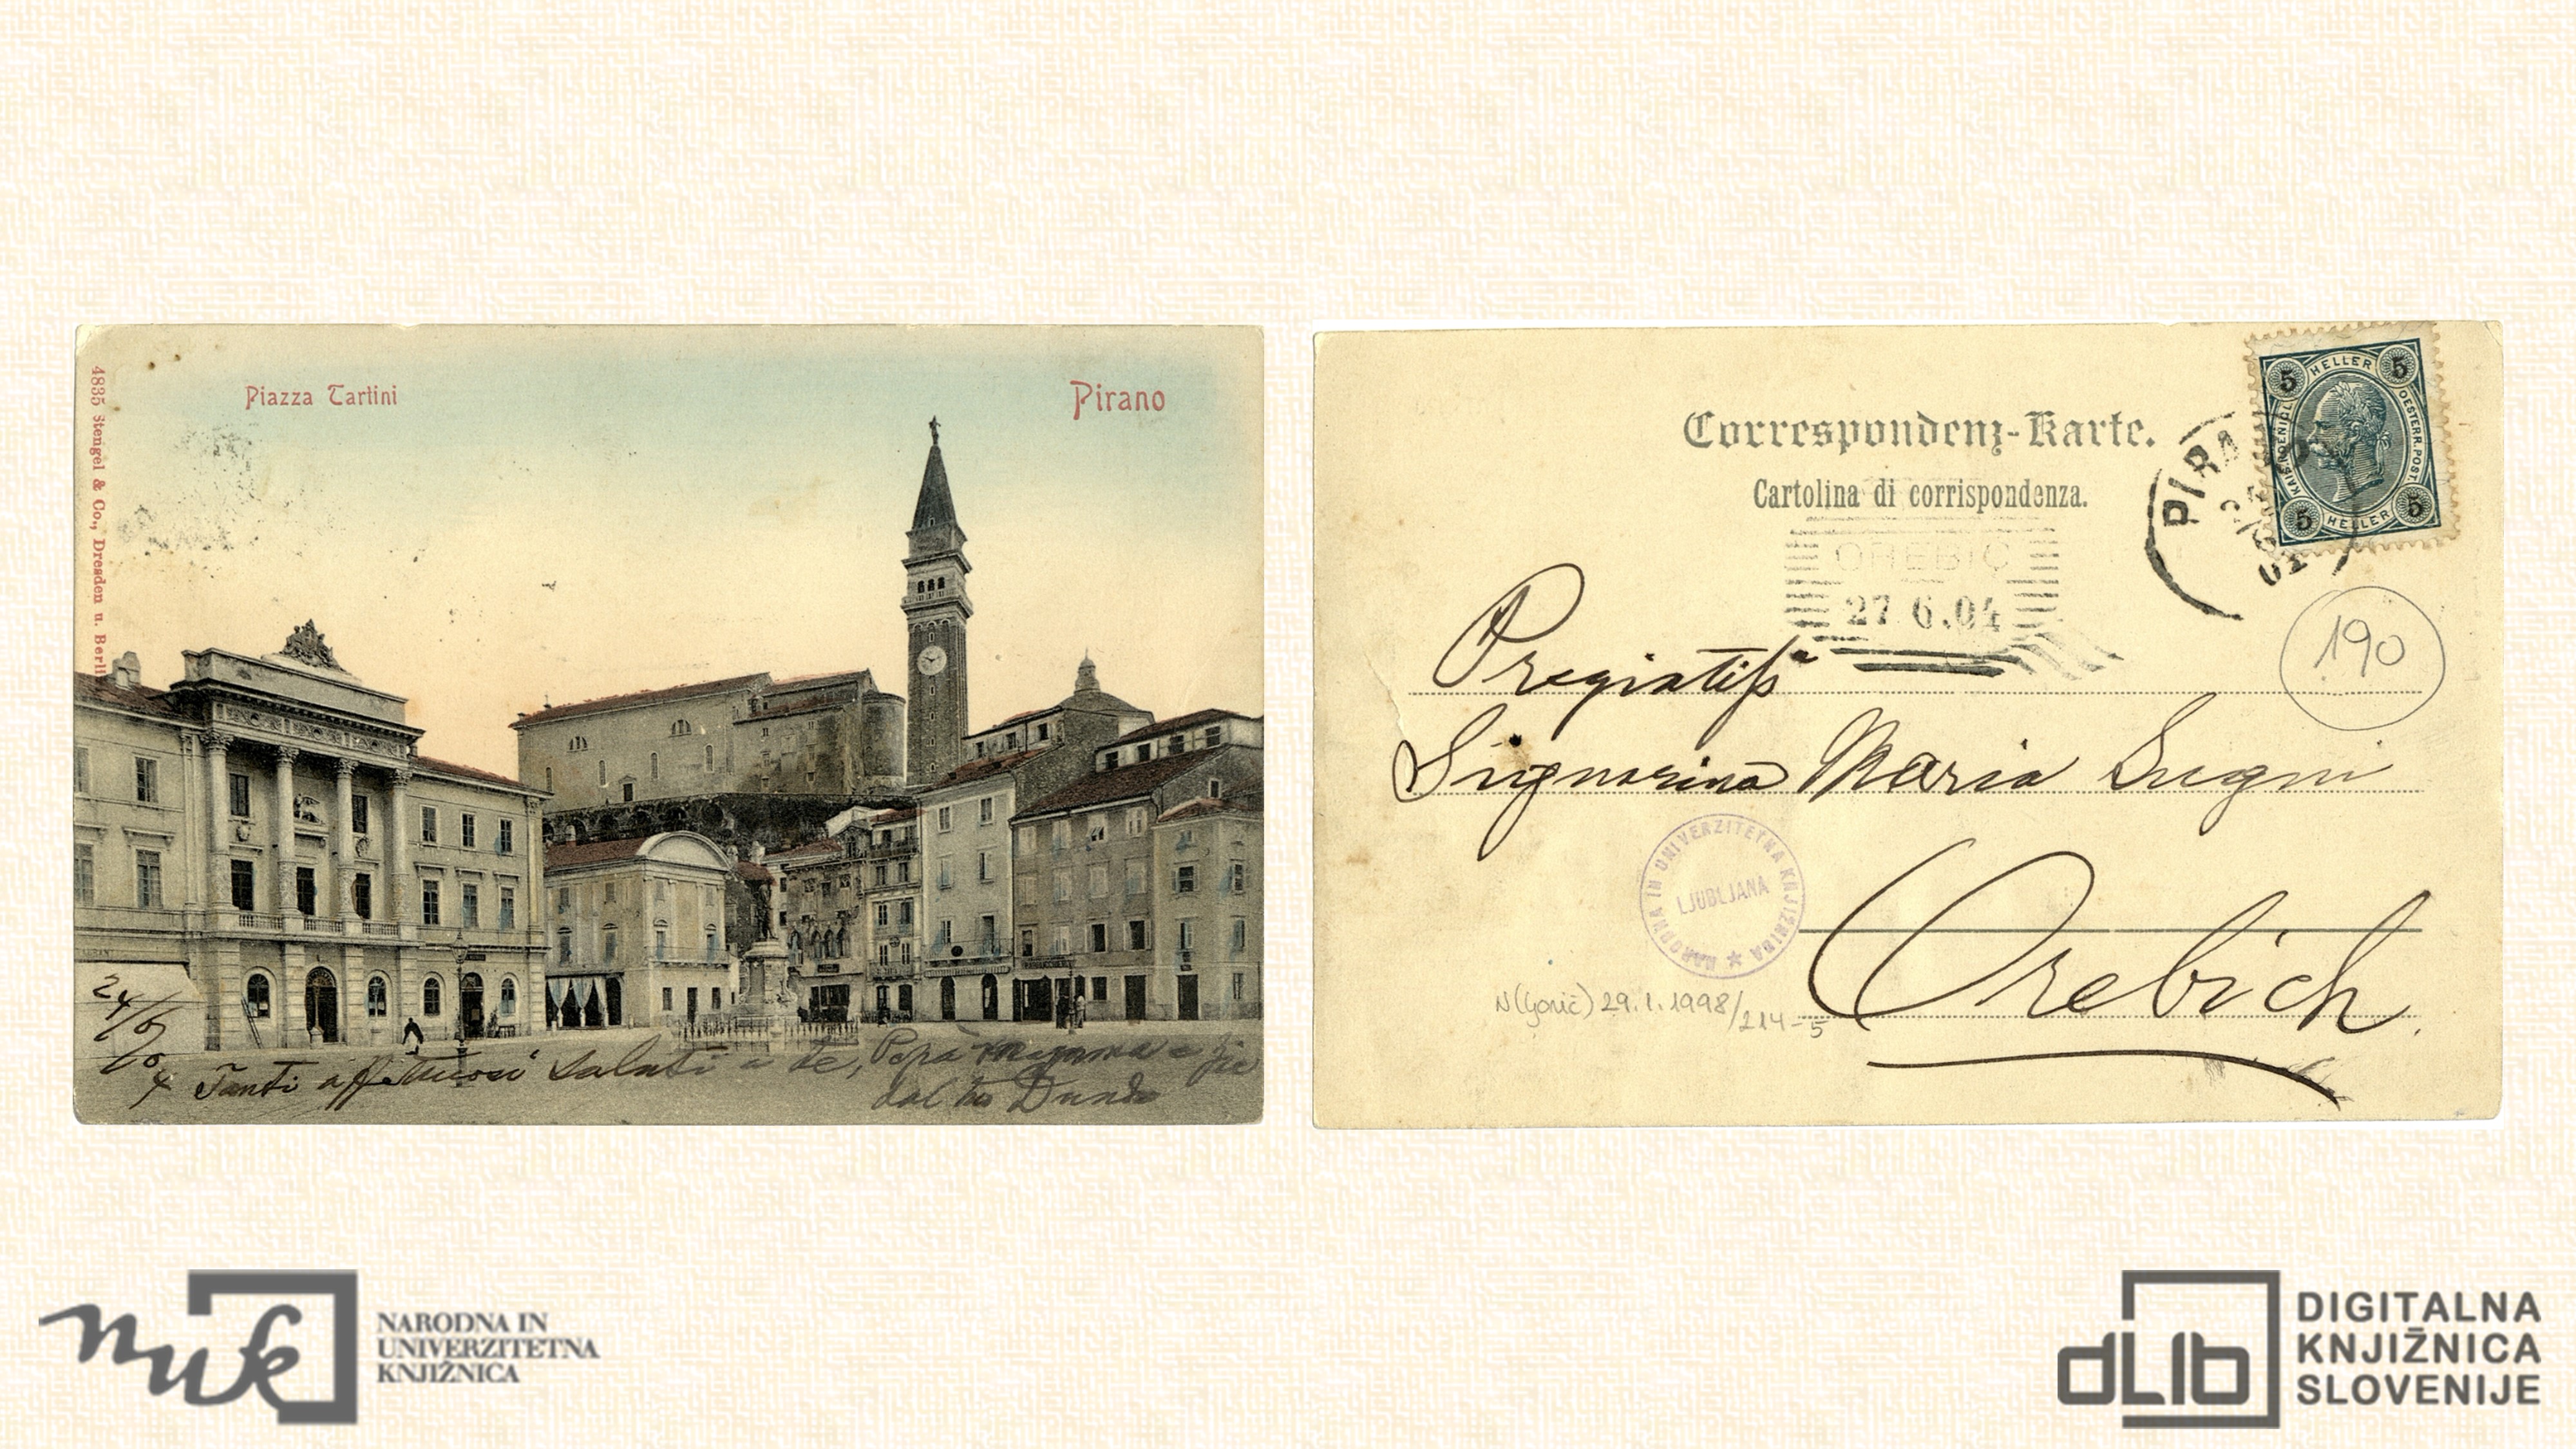 Piazza Tartini
Pirano
4835 Stengel & Co., Dresden u. Berli
24/6
04
Tanti affettuosi saluti a te, Papà mamma e
dal tuo Dundo
Correspondenz-Karte.
Cartolina di corrispondenza.
5 HELLER 5
KAIS. KOENIGL. OESTERR. POST
5 HELLER 5
PIRA
OREBIĆ
27 6.04
190
Pregiatissª
Signorina Maria
Orebich
NARODNA IN UNIVERZITETNA KNJIŽNICA
LJUBLJANA
29.1.1998/
214-5
nuk
NARODNA IN
UNIVERZITETNA
KNJIŽNICA
dLib
DIGITALNA
KNJIŽNICA
SLOVENIJE